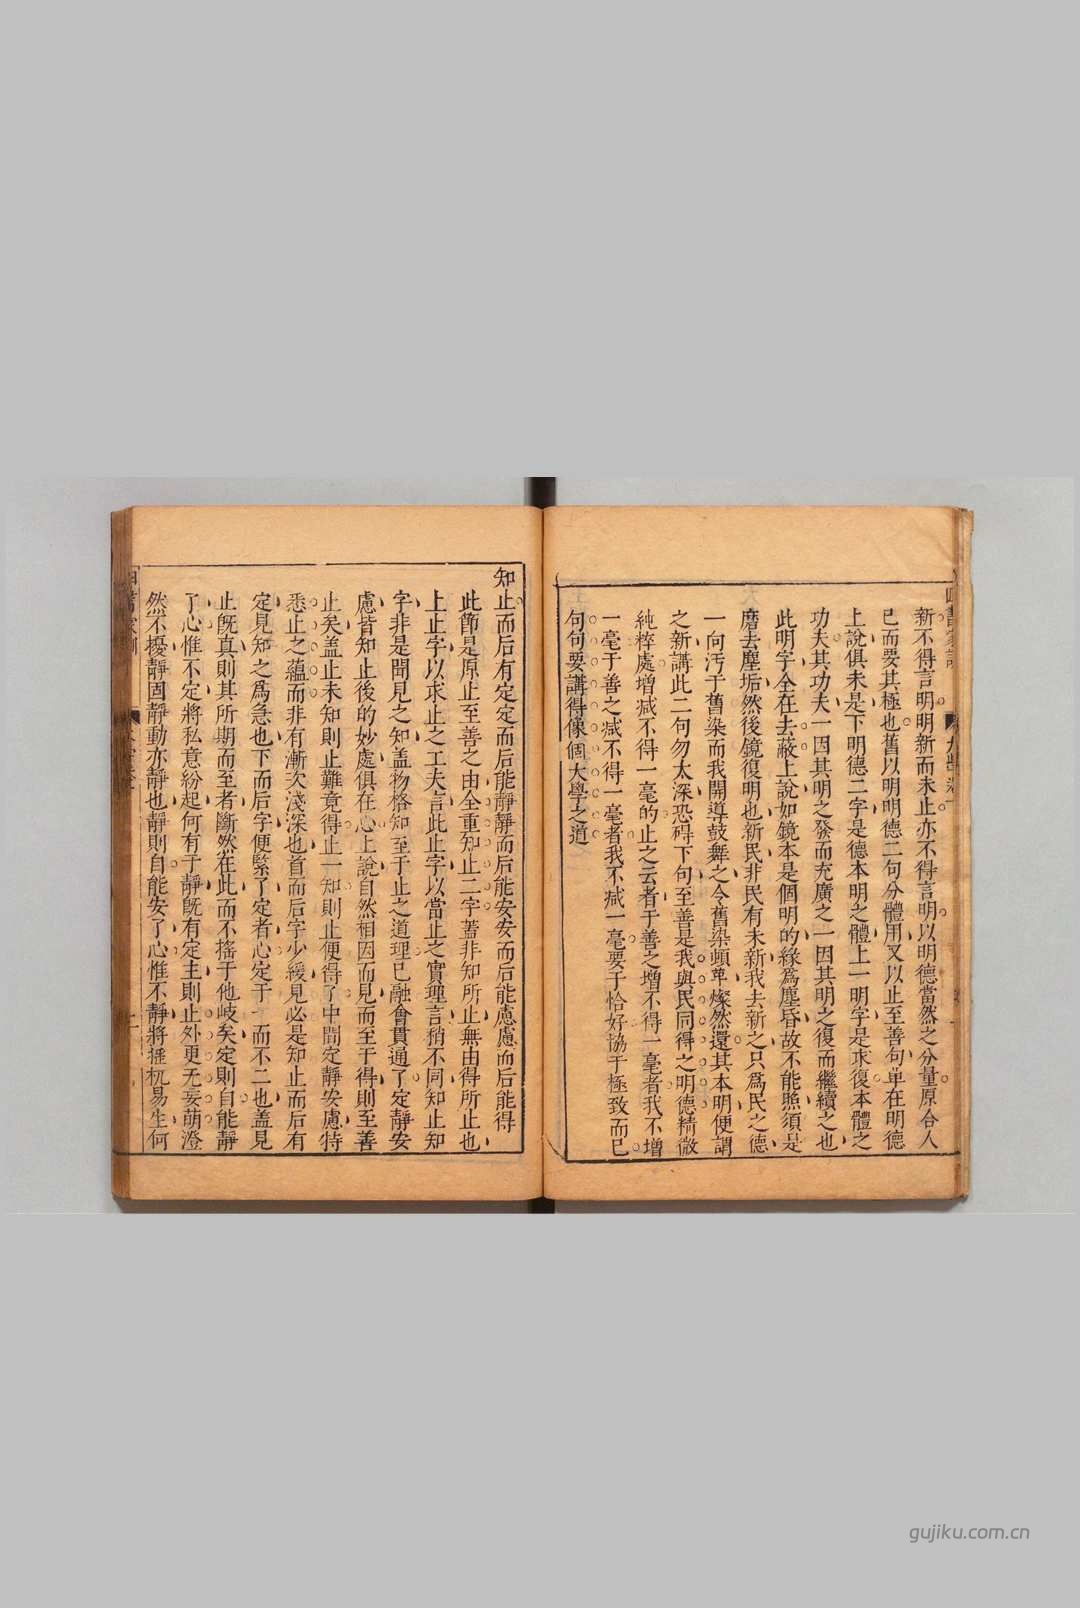 新不得言明明新而未止亦不得言明以明德當然之分量原合人
已而要其極也舊以明明德二句分體用又以止至善句单在明德
上說俱未是下明德二字是德本明之體上一明字是求復本體之
功夫其功夫一因其明之發而充廣之一因其明之復而繼續之也
此明字全在去蔽上說如鏡本是個明的緣為塵昏故不能照須是
磨去塵垢然後鏡復明也新民非民有未新我去新之只為民之德
一向汚于舊染而我開導鼓舞之令舊染頓革燦然還其本明便謂
之新講此二句勿太深恐碍下句至善是我與民同得之明德精微
純粹處増减不得一毫的止之云者于善之增不得一毫者我不增
一毫于善之减不得一毫者我不减一毫要于恰好協于極致而已
句句要講得像個大學之道
知止而后有定定而后能靜靜而后能安安而后能慮慮而后能得
此節是原止至善之由全重知止二字蓋非知所止無由得所止也
上止字以求止之工夫言此止字以當止之實理言稍不同知止知
字非是聞見之知盖物格知至于止之道理已融會貫通了定靜安
慮皆知止後的妙處俱在心上說自然相因而見而至于得則至善
止矣盖止未知則止難竟得止一知則止便得了中間定靜安慮特
悉止之蘊而非有漸次淺深也首而后字少緩見必是知止而后有
定見知之為急也下而后字便緊了定者心定于一而不二也盖見
止旣真則其所期而至者斷然在此而不搖于他岐矣定則自能靜
了心惟不定將私意紛起何有于靜旣有定主則止外更无妄萌澄
然不擾靜固靜動亦靜也靜則自能安了心惟不靜將摇杌易生何